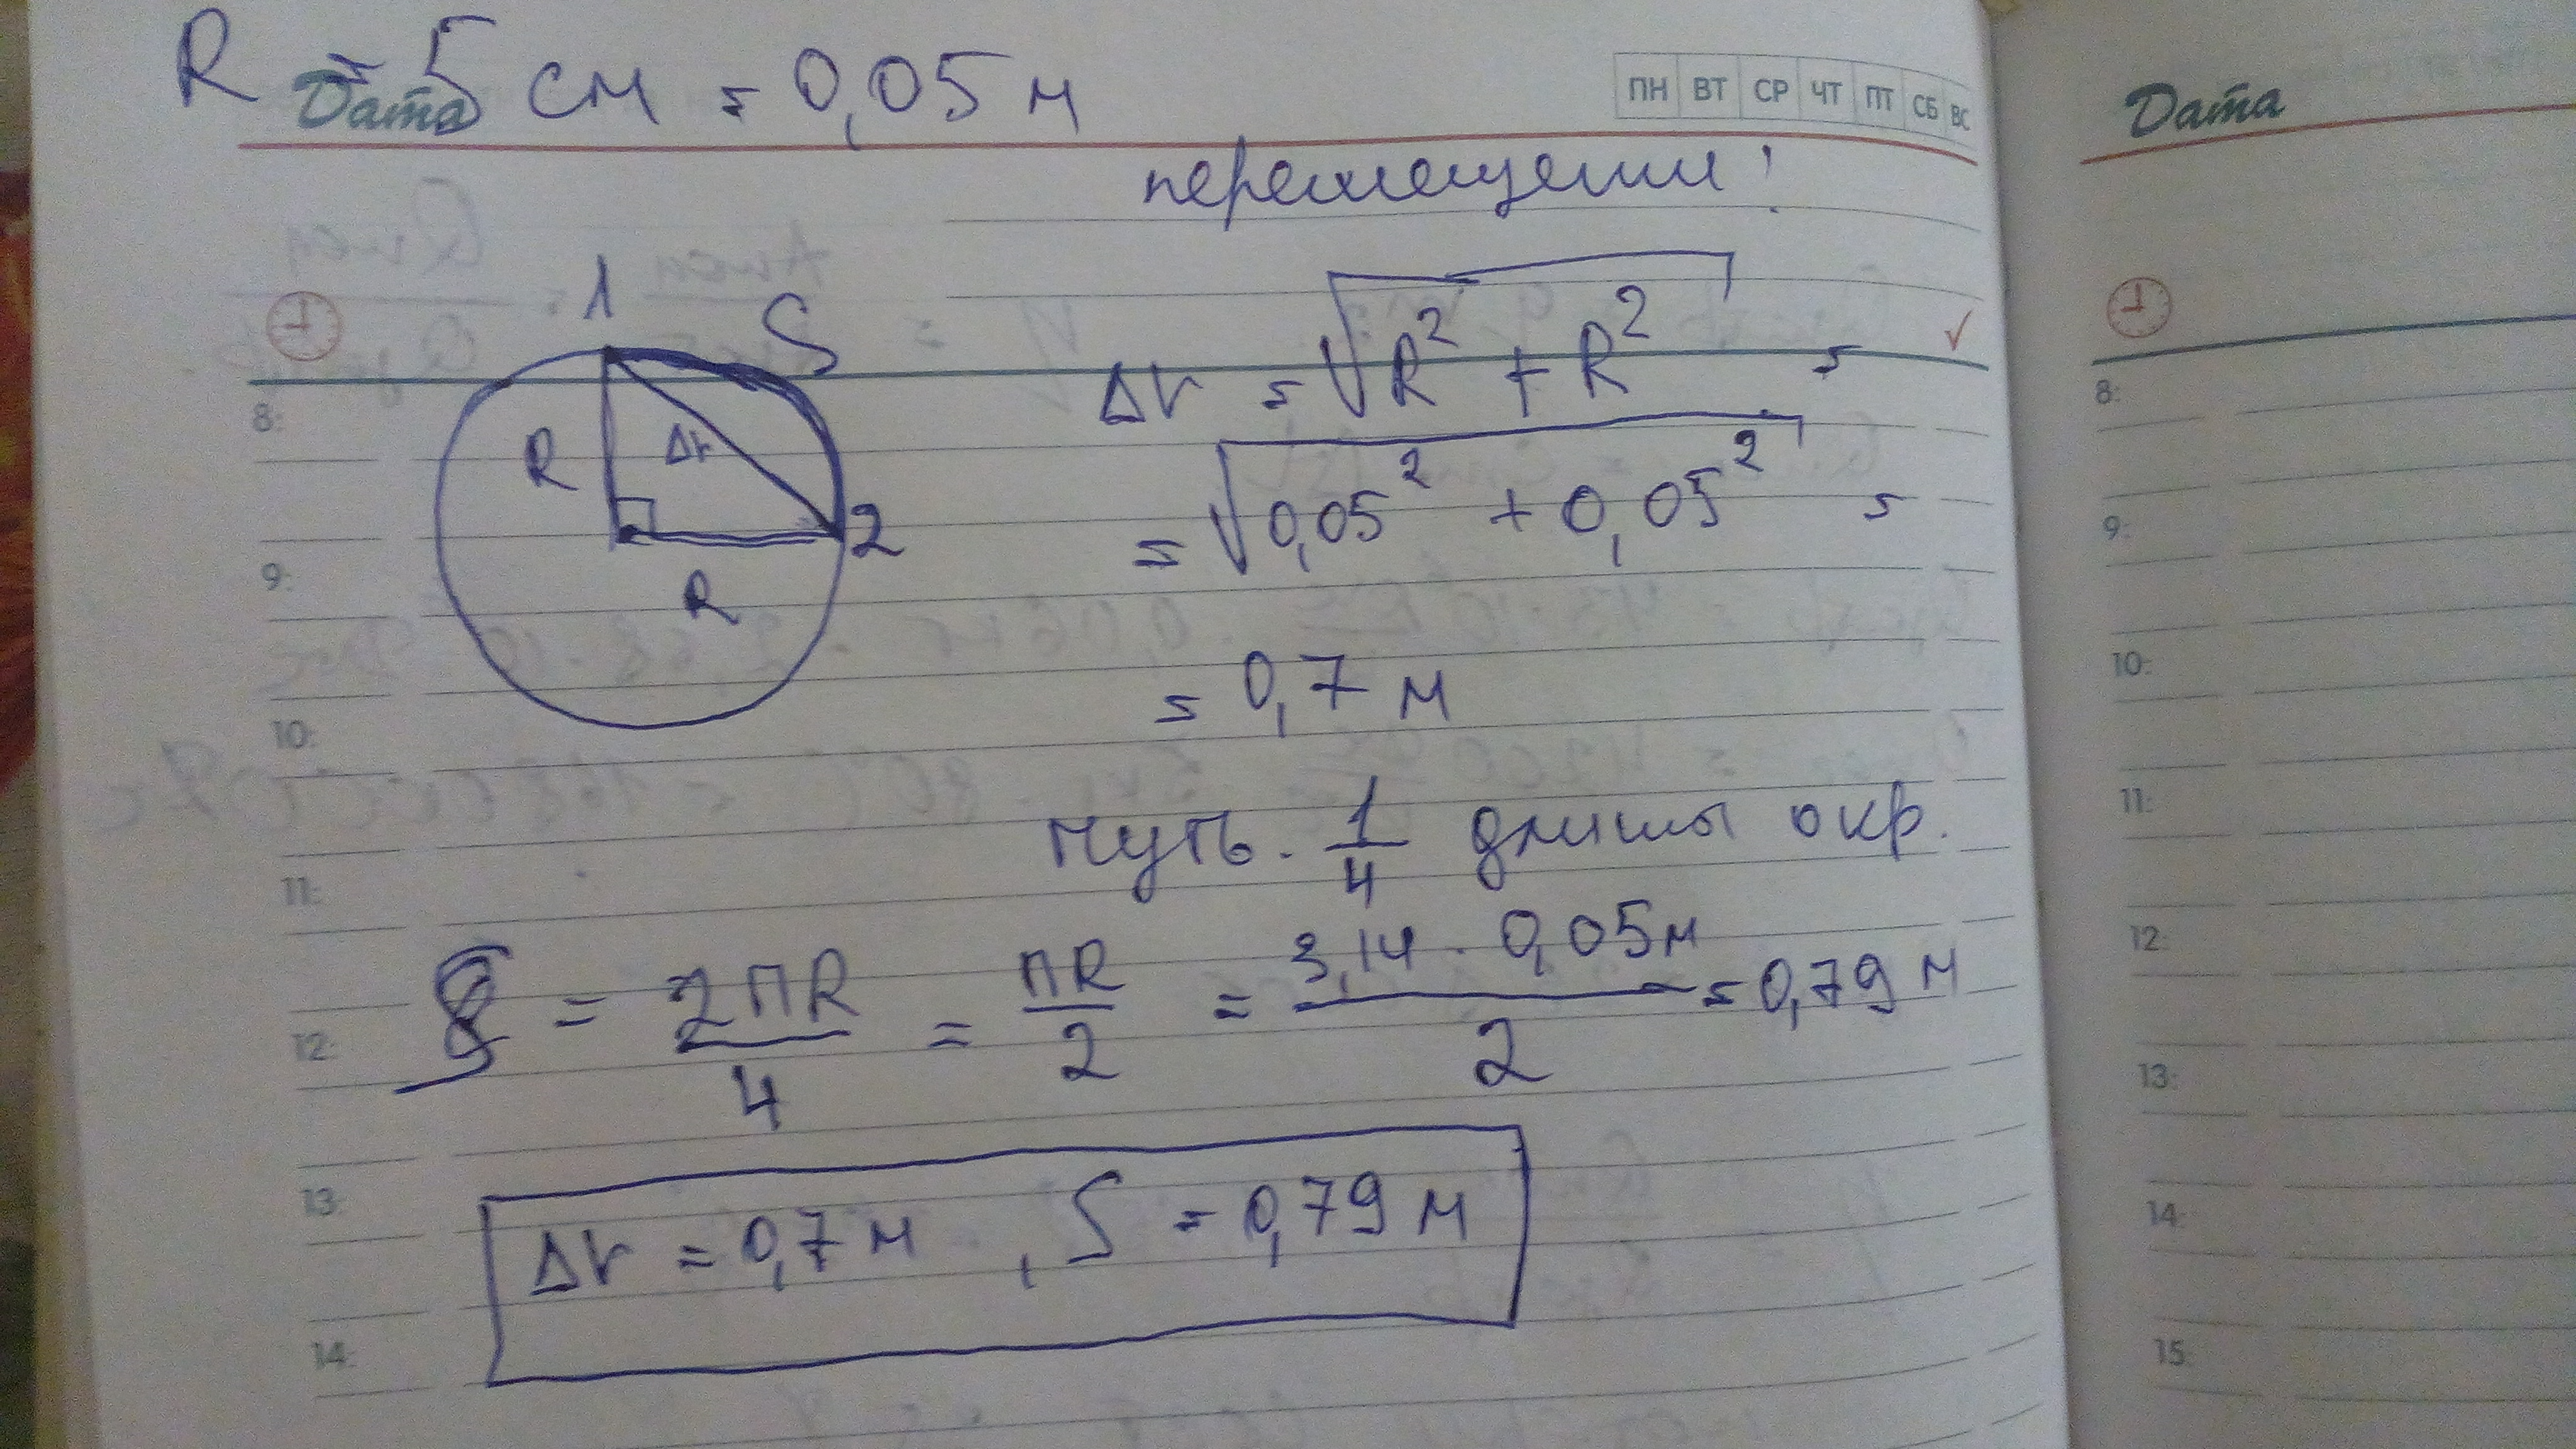 R = 5 см = 0,05 м
Дата
ПН ВТ СР ЧТ ПТ СБ ВС
Дата
перемещении!
1
S
R
Δr
2
R
Δr = √R² + R² =
= √0,05² + 0,05² =
= 0,7 м
путь. 1/4 длины окр.
S = 2ПR/4 = ПR/2 = 3,14 · 0,05м/2 = 0,79 м
Δr = 0,7 м , S = 0,79 м
8:
9:
10:
11:
12:
13:
14:
8:
9:
10:
11:
12:
13:
14:
15: